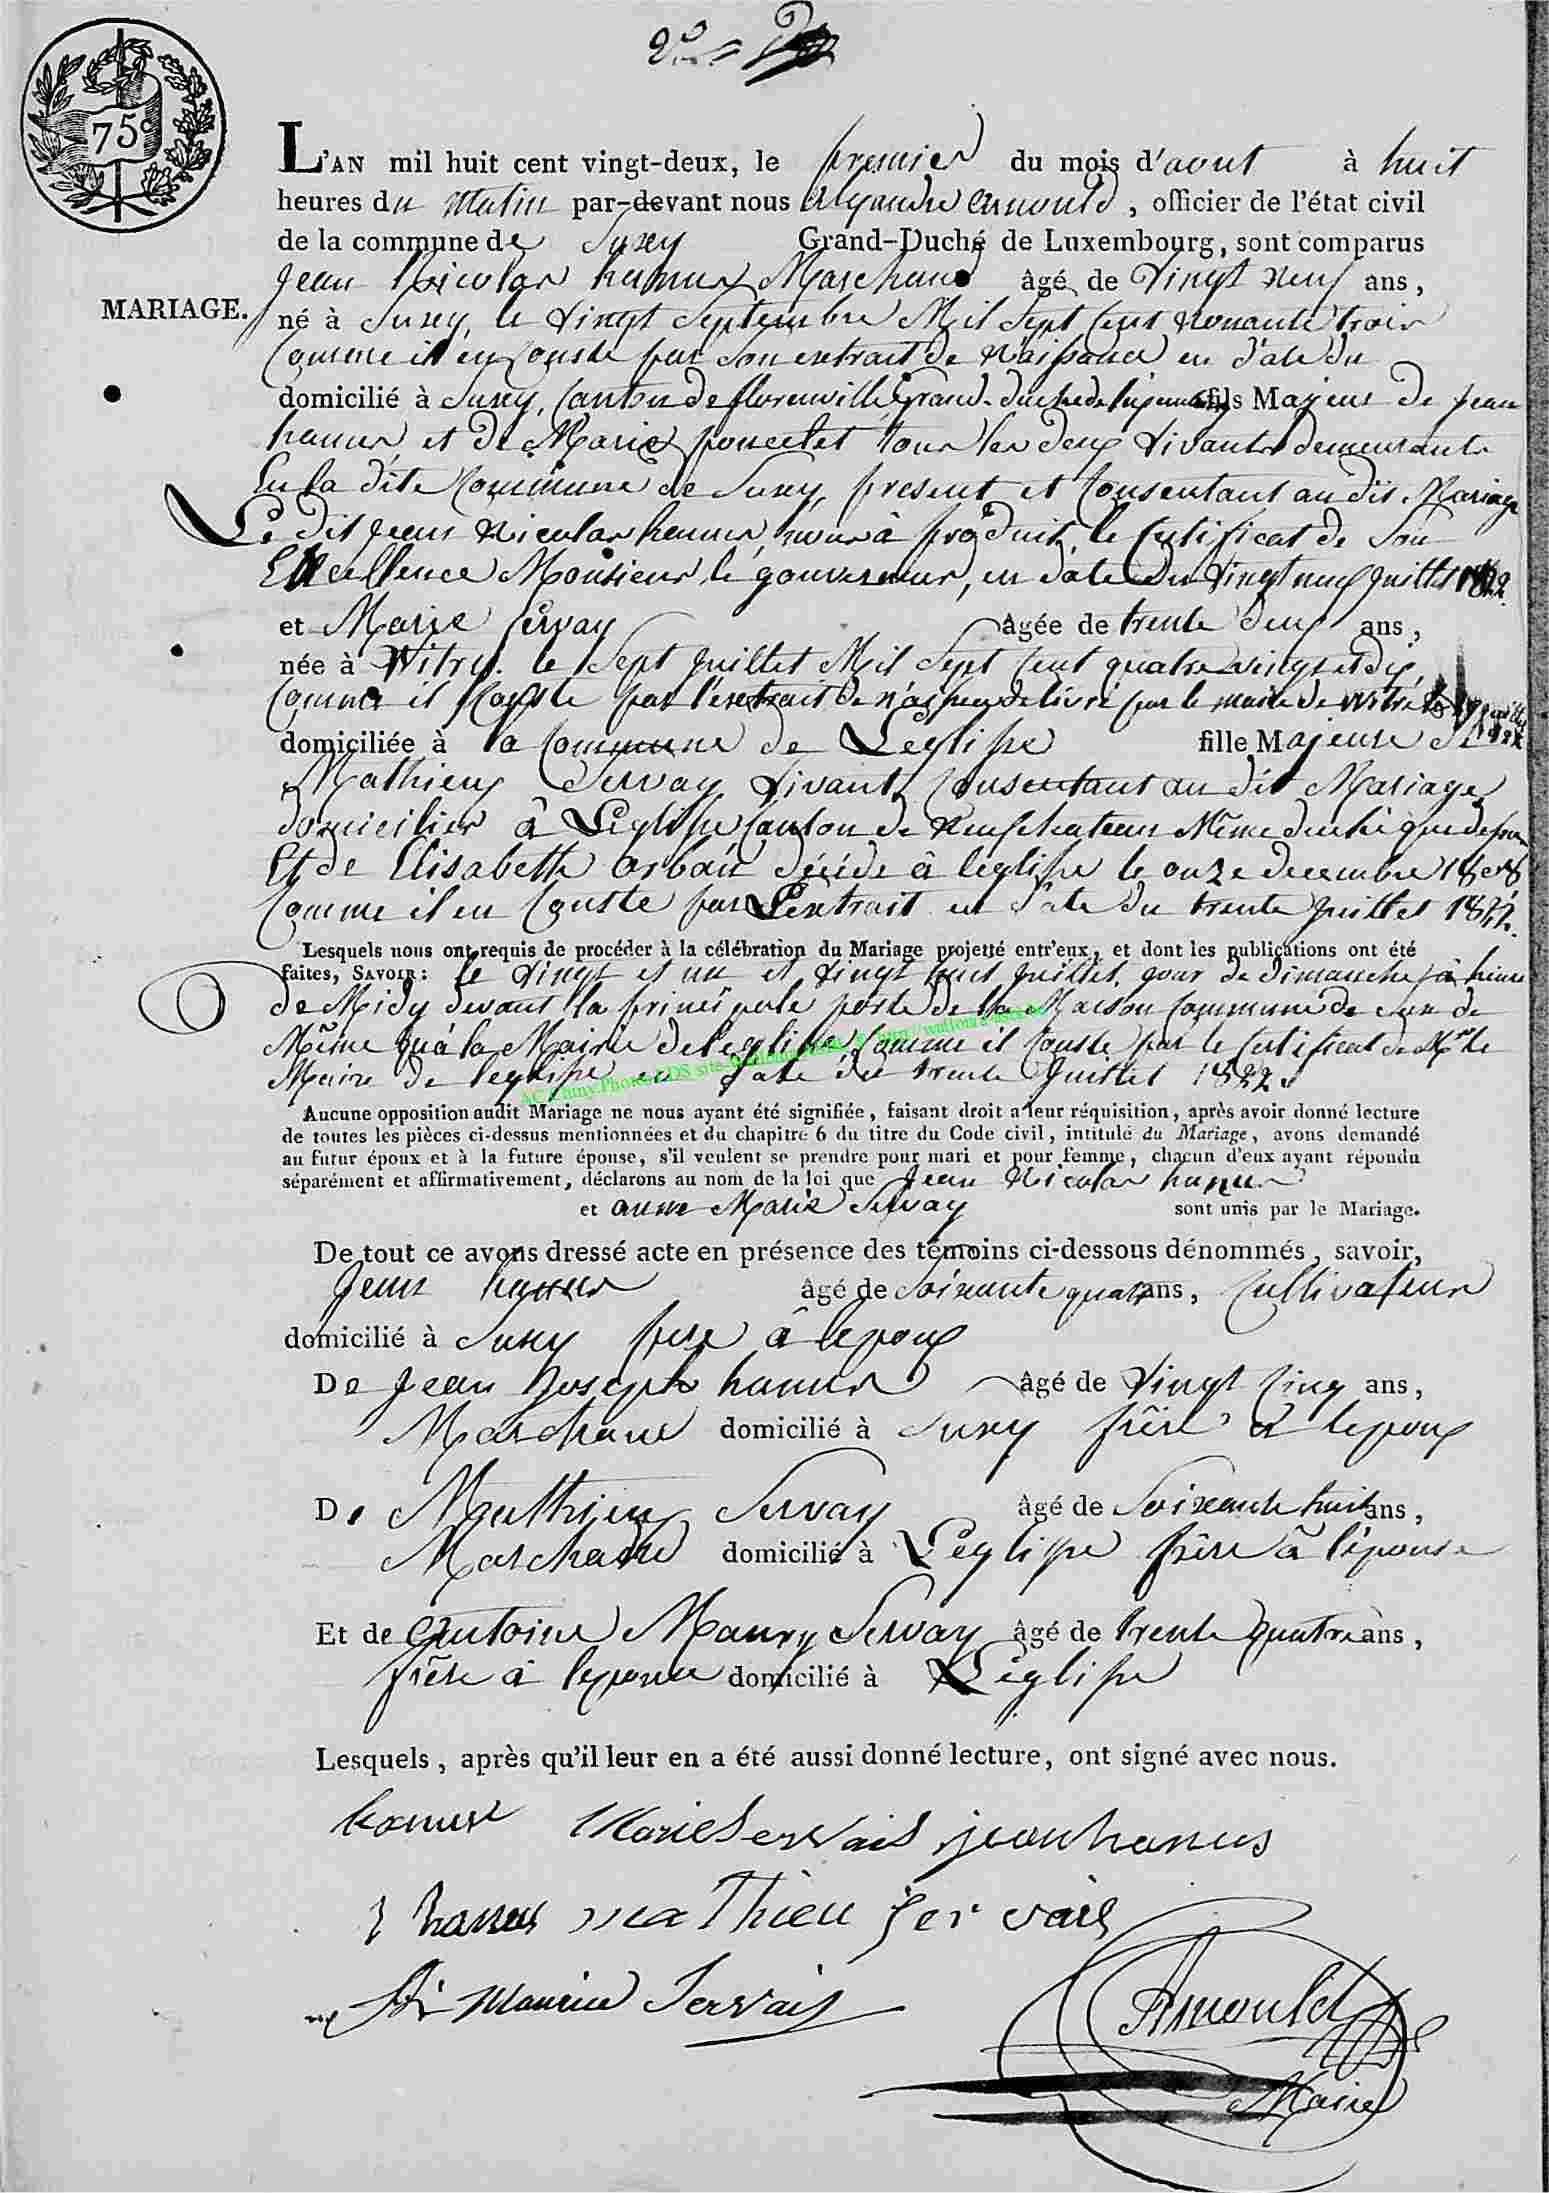 75c
L'AN mil huit cent vingt-deux, le premier du mois d'aout à huit
heures du Matin par-devant nous alexandre arnould, officier de l'état civil
de la commune de Suxey Grand-Duché de Luxembourg, sont comparus
MARIAGE.
Jean Nicolas hanus Marchand âgé de Vingt neuf ans,
né à Suxey, le Vingt Septembre Mil Sept Cent Nonante trois
Comme il en Conste par Son extrait de Naissance en date du
domicilié à Suxey, Canton de florenville Grand-duché de fils Majeur de Jean
hanus et de Marie poncelet tous les deux Vivants demeurants
En la dite Commune de Suxey, present et Consentant au dit Mariage
Le dit Jean Nicolas hanus, nous à produit le Certificat de Son
Excellence Monsieur le gouverneur, en date du Vingt neuf Juillet 1822.
et Marie Servay âgée de trente deux ans,
née à Witry. le Sept Juillet Mil Sept Cent quatre vingt et dix
Comme il Conste par l'extrait de délivré par le maire de Witry
domiciliée à la Commune de Leglisse fille Majeure de
Mathieu Servay Vivant, Consentant au dit Mariage
domicilier â Leglisse Canton de Neufchateau Même duché que
Et de Elisabette décédé â leglisse le onze decembre 1808
Comme il en Conste par L'extrait en date du trente Juillet 1822.
Lesquels nous ont requis de procéder à la célébration du Mariage projetté entr'eux, et dont les publications ont été
faites, SAVOIR: le Vingt et un et Vingt huit Juillet, jour de Dimanche à heure
de Midy devant la principale porte de la Maison Commune de de
Même qu'à la Mairie de leglisse Comme il Conste par le Certificat de Mr le
Maire de leglisse en date du trente Juillet 1822.
Aucune opposition audit Mariage ne nous ayant été signifiée, faisant droit a leur réquisition, après avoir donné lecture
de toutes les pièces ci-dessus mentionnées et du chapitre 6 du titre du Code civil, intitulé du Mariage, avons demandé
au futur époux et à la future épouse, s'il veulent se prendre pour mari et pour femme, chacun d'eux ayant répondu
séparément et affirmativement, déclarons au nom de la loi que Jean Nicolas hanus
et anne Marie Servay sont unis par le Mariage.
De tout ce avons dressé acte en présence des témoins ci-dessous dénommés, savoir,
Jean hanus âgé de Soixante quatre ans, Cultivateur
domicilié à Suxey pere â lepoux
De Jean Joseph hanus âgé de Vingt Cinq ans,
Marchand domicilié à Suxey frère a lepoux
De Matthieu Servay âgé de Soixante huit ans,
Marchand domicilié à Leglisse frère â l'epouse
Et de Antoine Maury Servay âgé de trente quatre ans,
frère â lepouse domicilié à Leglisse
Lesquels, après qu'il leur en a été aussi donné lecture, ont signé avec nous.
hanus Marie Servais jean hanus
hanus mathieu Servais
Maurice Servais
Arnould
Maire